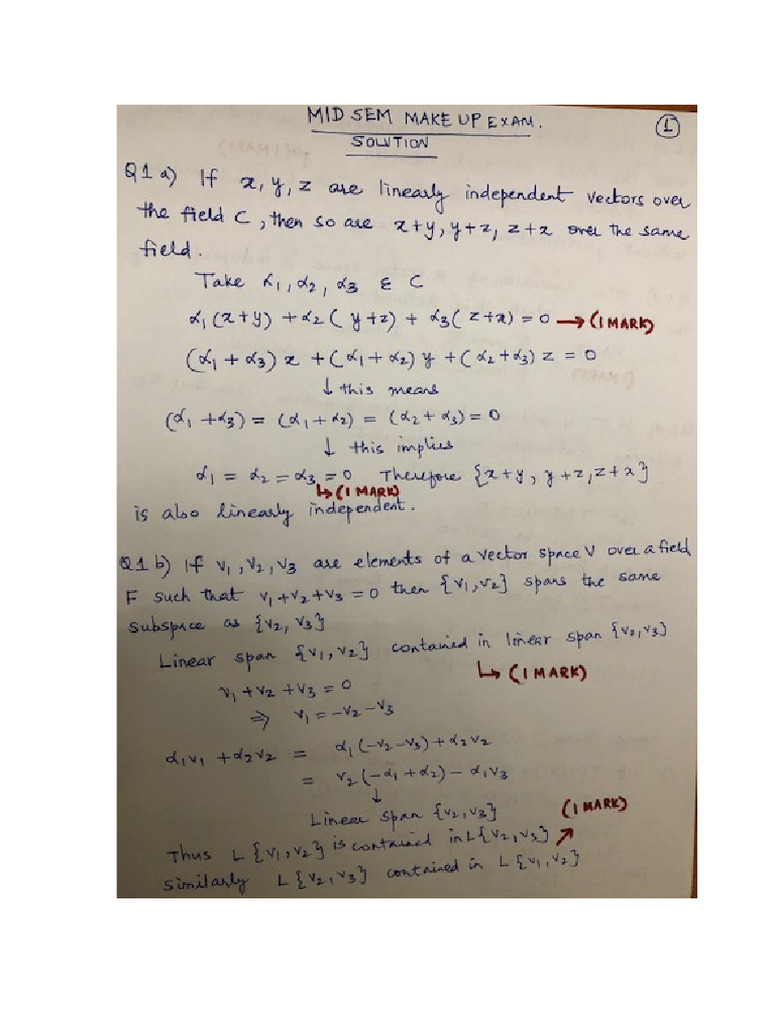 MID SEM MAKE UP EXAM.
1
SOLUTION
Q1 a) If x, y, z are linearly independent vectors over
the field C, then so are x+y, y+z, z+x over the same
field.
Take α1, α2, α3 ∈ C
α1(x+y) + α2(y+z) + α3(z+x) = 0 → (1 MARK)
(α1 + α3) x + (α1 + α2) y + (α2 + α3) z = 0
↓ this means
(α1 + α3) = (α1 + α2) = (α2 + α3) = 0
↓ this implies
α1 = α2 = α3 = 0 Therefore {x+y, y+z, z+x}
↳ (1 MARK)
is also linearly independent.
Q1 b) If v1, v2, v3 are elements of a vector space V over a field
F such that v1+v2+v3 = 0 then {v1, v2} spans the same
subspace as {v2, v3}
Linear span {v1, v2} contained in linear span {v2, v3}
↳ (1 MARK)
v1 + v2 + v3 = 0
⇒ v1 = -v2 - v3
α1v1 + α2v2 = α1(-v2-v3) + α2v2
= v2(-α1 + α2) - α1v3
↓
Linear span {v2, v3}
(1 MARK)
Thus L{v1, v2} is contained in L{v2, v3} ↗
Similarly L{v2, v3} contained in L{v1, v2}